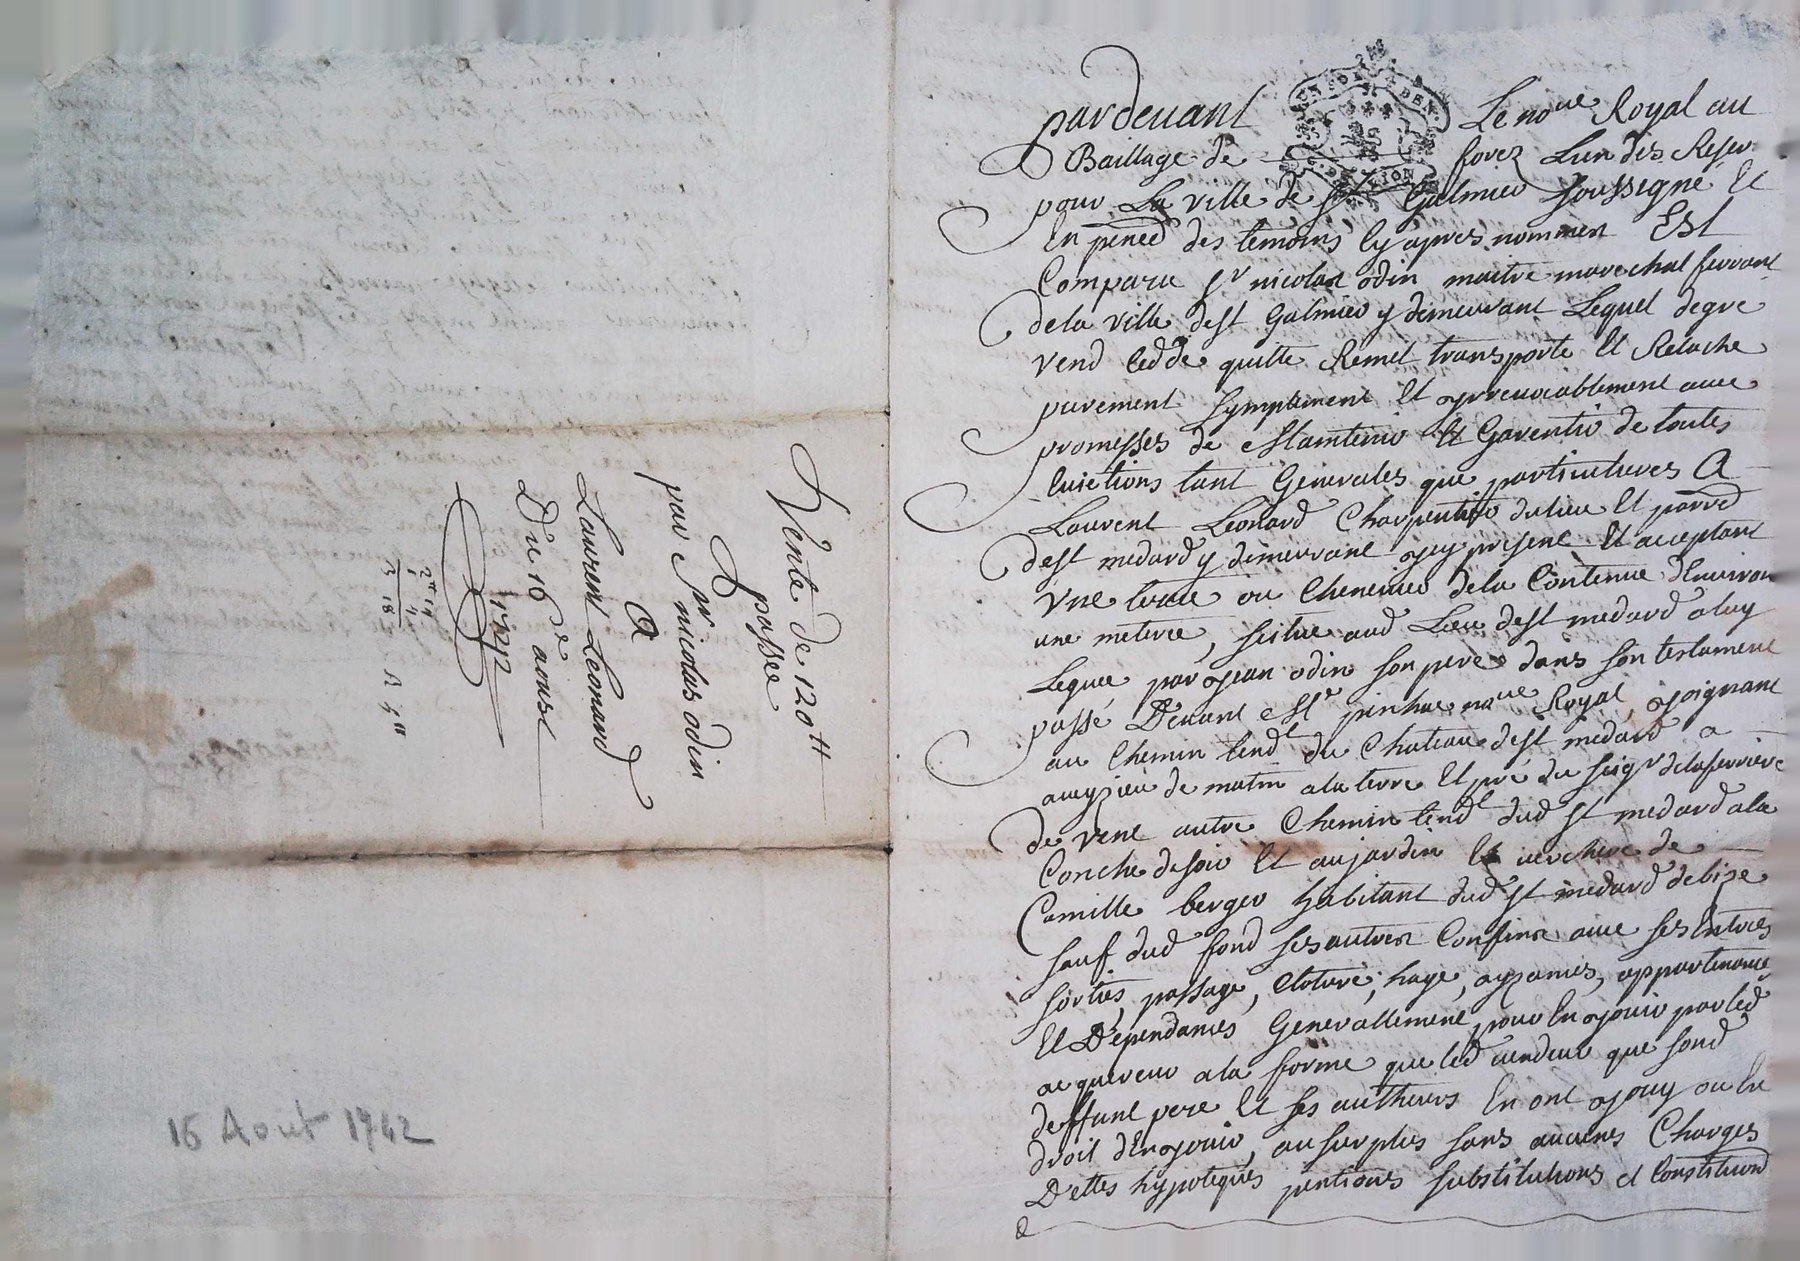 Vente de 120 tt
passée
par Sr nicolas odin
A
Laurent Leonard
Du 16e aoust
1742
15 Aout 1742
GEN DE LION
pardevant Le nore Royal au
Baillage de forez Lun des Reser
pour La ville de st Galmier soussigné Et
En pnce des temoins cy apres nommes Est
Comparu sr nicolas odin maitre marechal ferrant
dela ville dest Galmier y demeurant Lequel degre
vend cedde quitte Remet transporte Et Relache
purement symplement Et yrrevocablement avec
promesses de Maintenir Et Garentir de toutes
Evictions tant Generales que particulieres A
Laurent Leonard Charpentier dulieu Et parrd
dest medard y demeurant ycy present Et acceptant
vne terre ou Chenevier dela Contenue dEnviron
une meterée, scitue aud Lieu dest medard aluy
Leguée par jean odin son pere dans son testament
passé Devant Me nore Royal, joignant
au Chemin tendt du Chateau dest medard a
aveyzieu de matin ala terre Et pré du seigr delaferriere
de vent autre Chemin tendt dud st medard ala
Conche desoir Et aujardin Et verchere de
Camille berger habitant dud st medard debize
sauf dud fond ses autres Confins avec ses Entrées
sorties, passage, Cloture, haye, ayzances, appartenances
Et Dependances Generallement, pour En jouir par led
acquereur ala forme que led vendeur que sond
deffunt pere Et ses autheurs En ont jouy ou Eu
droit dEnjouir, ausurplus sans aucunes Charges
Dettes hypoteques pentions substitutions et Constitutions